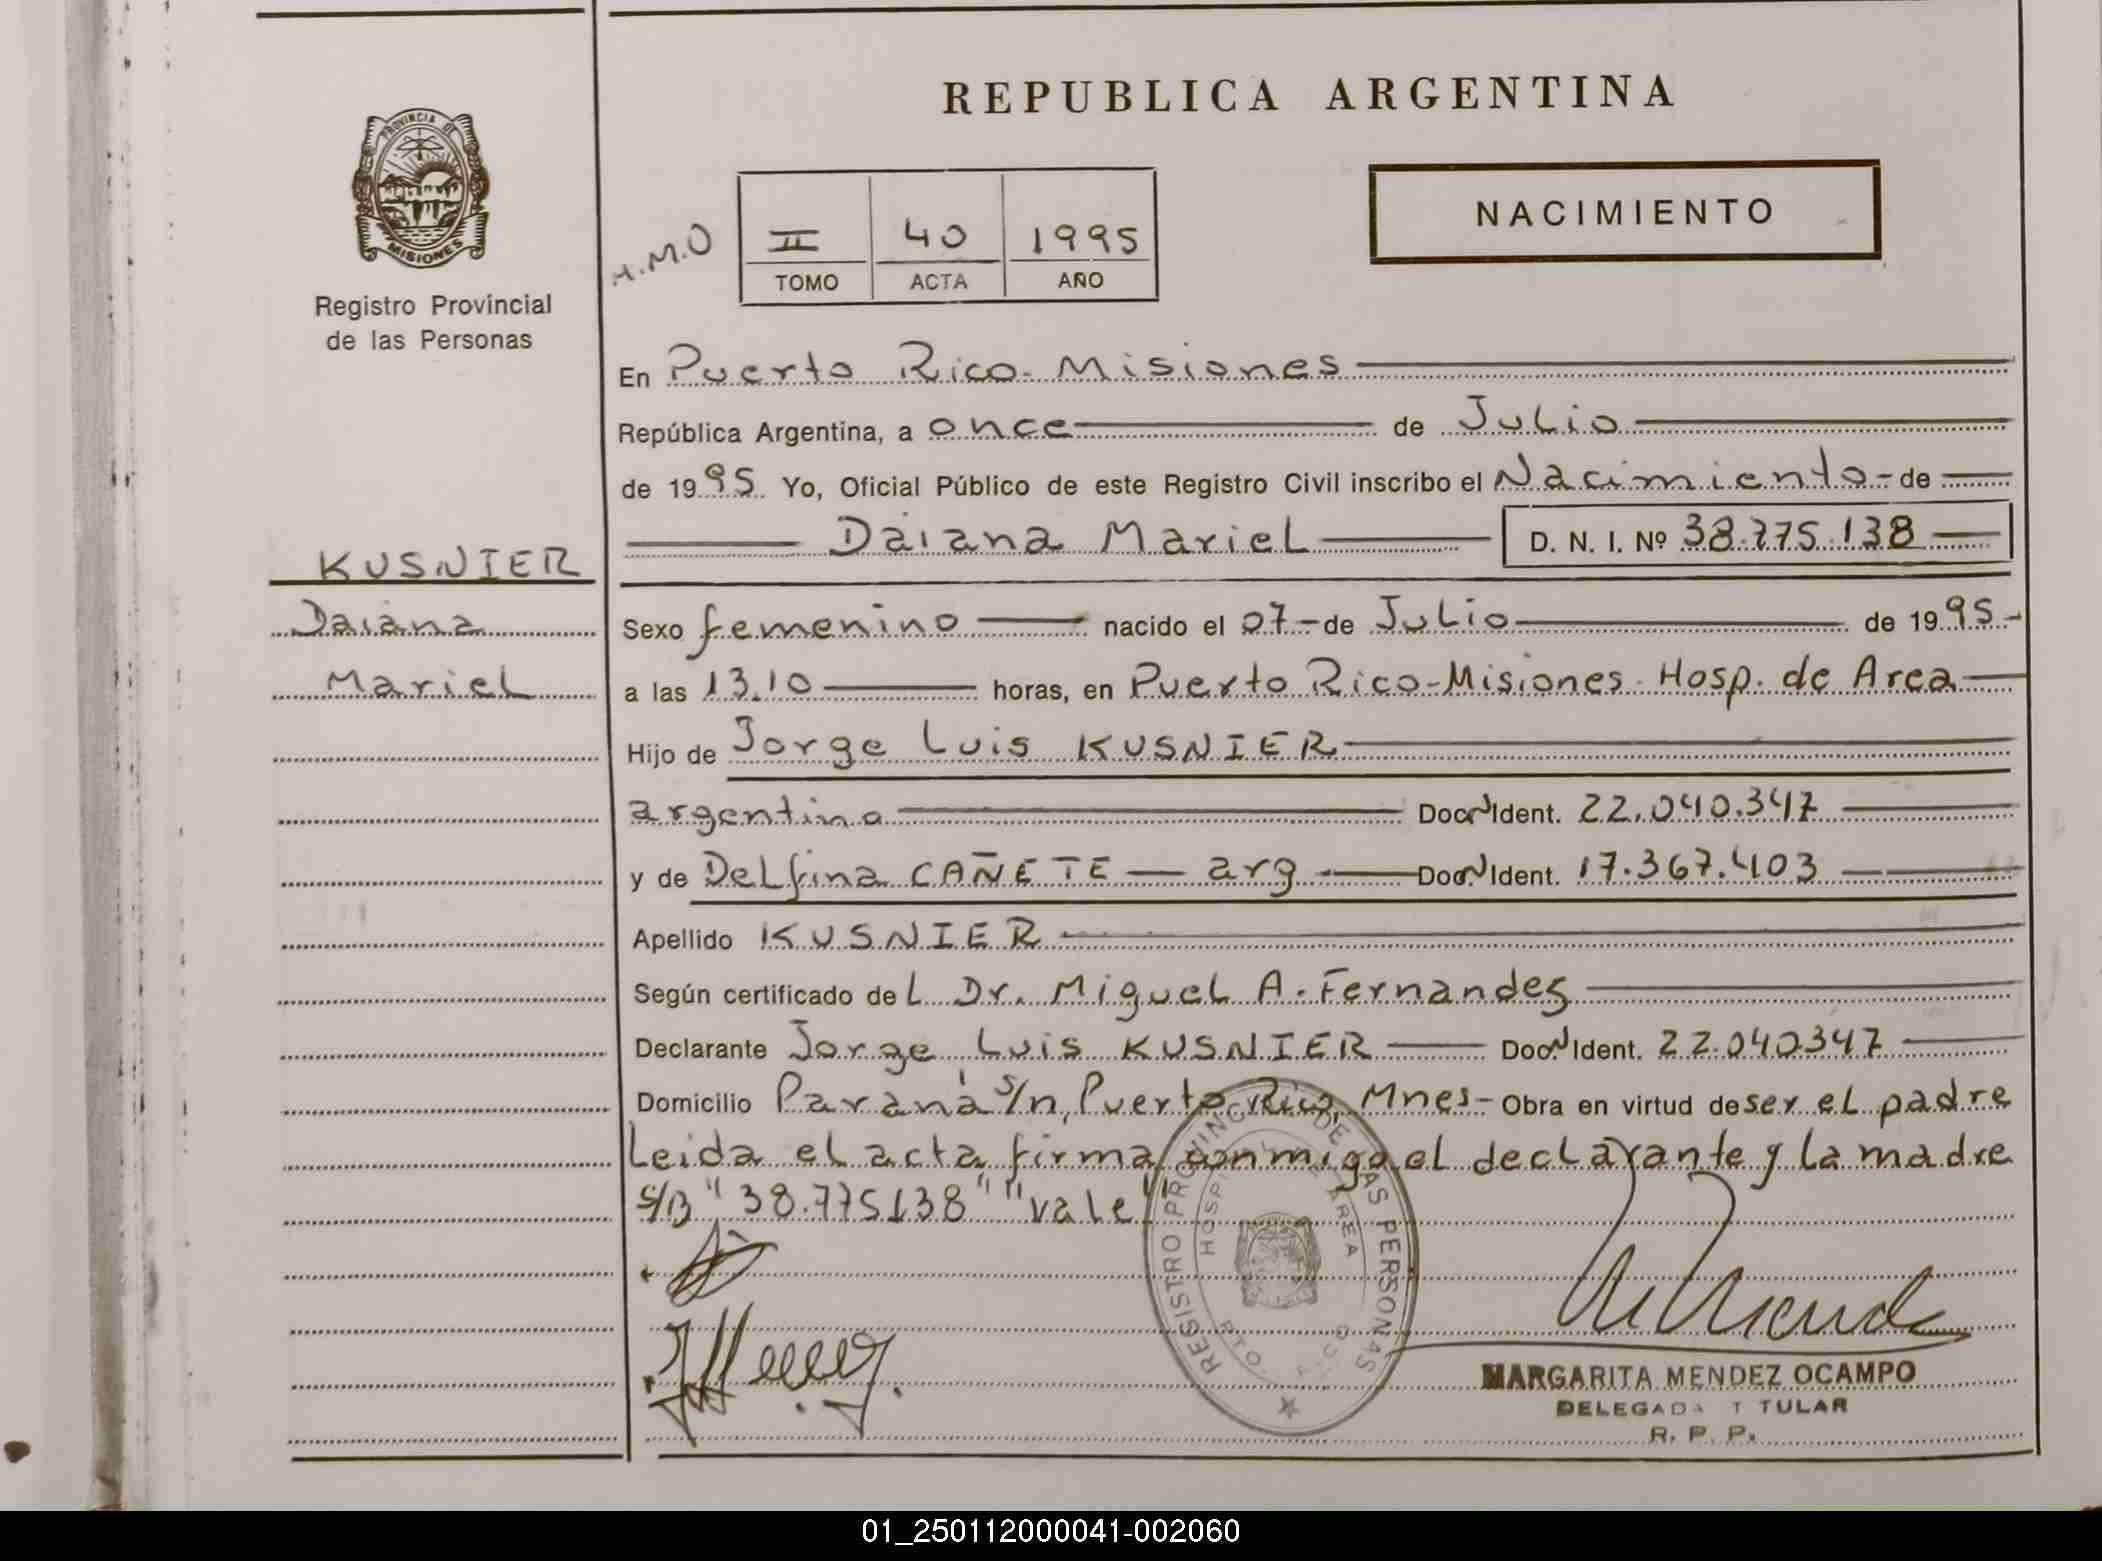 REPUBLICA ARGENTINA
PROVINCIA DE
MISIONES
Registro Provincial
de las Personas
H.M.O
II 40 1995
TOMO ACTA AÑO
NACIMIENTO
En Puerto Rico - Misiones
República Argentina, a once de Julio
de 1995 Yo, Oficial Público de este Registro Civil inscribo el Nacimiento - de
Daiana Mariel D. N. I. Nº 38.775.138
KUSNIER
Daiana
Mariel
Sexo femenino nacido el 07 - de Julio de 1995 -
a las 13.10 horas, en Puerto Rico - Misiones - Hosp. de Area
Hijo de Jorge Luis KUSNIER
argentino Doc. N Ident. 22.040.347
y de Delfina CAÑETE — arg Doc. N Ident. 17.367.403
Apellido KUSNIER
Según certificado del Dr. Miguel A. Fernandes
Declarante Jorge Luis KUSNIER Doc. N Ident. 22.040347
Domicilio Paraná s/n, Puerto Rico, Mnes - Obra en virtud de ser el padre
Leida el acta firma conmigo el declarante y la madre
S/B "38.775138" "vale"
REGISTRO PROVINCIAL DE LAS PERSONAS
HOSPITAL DE AREA
PTO. RICO
MARGARITA MENDEZ OCAMPO
DELEGADA TITULAR
R. P. P.
01_250112000041-002060